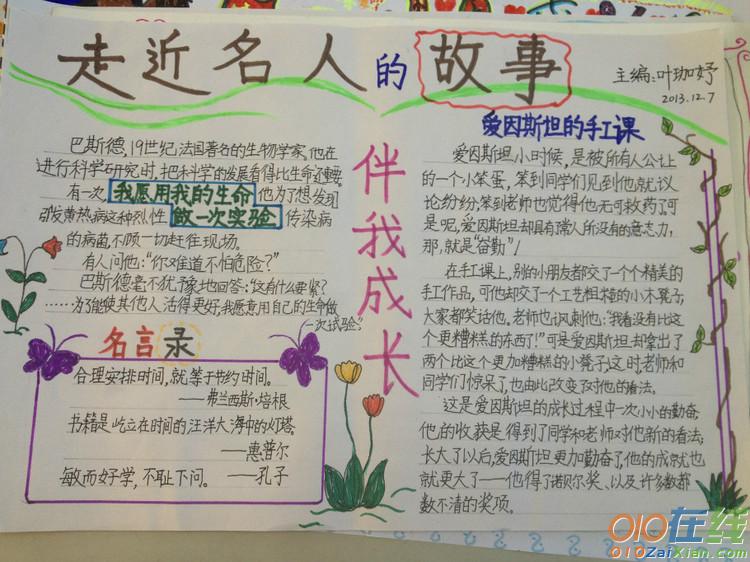 走近名人的故事
主编:叶珈妤
2013.12.7
巴斯德,19世纪法国著名的生物学家。他在
进行科学研究时,把科学的发展看得比生命还重要。
有一次, 我愿用我的生命 他为了想发现
引发黄热病这种烈性 做一次实验 传染病
的病菌,不顾一切赶往现场。
有人问他:“你难道不怕危险?”
巴斯德毫不犹豫地回答:“这有什么要紧?
……为了能使其他人活得更好,我愿意用自己的生命做
一次试验”
名言录
合理安排时间,就等于节约时间。
——弗兰西斯·培根
书籍是屹立在时间的汪洋大海中的灯塔
——惠普尔
敏而好学,不耻下问。——孔子
伴我成长
爱因斯坦的手工课
爱因斯坦小时候,是被所有人公认
的一个小笨蛋,笨到同学们见到他,就议
论纷纷;笨到老师也觉得他无可救药了。可
是呢,爱因斯坦却具有常人所没有的意志力,
那,就是“奋勤”!
在手工课上,别的小朋友都交了一个个精美的
手工作品,可他却交了一个工艺粗糙的小木凳子,
大家都笑话他。老师也讽刺他:“我看没有比这
个更糟糕的东西了!”可是爱因斯坦却拿出了
两个比这个更加糟糕的小凳子,这时,老师和
同学们惊呆了,也由此改变了对他的看法。
这是爱因斯坦的成长过程中一次小小的勤奋,
他的收获是得到了同学和老师对他新的看法;
长大了以后,爱因斯坦更加勤奋了,他的成就也
就更大了——他得了诺贝尔奖、以及许多数都
数不清的奖项。
010在线
010ZaiXian.com